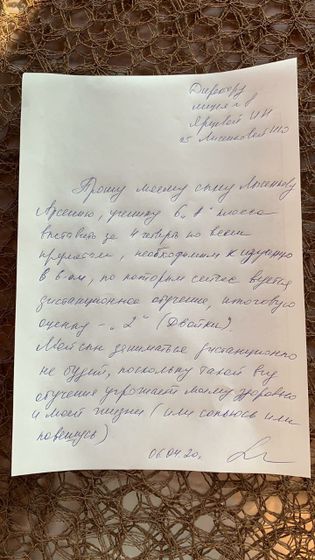 Директору
лицея № 8
Ярцевой И.И
от Лысенковой И.Ю
Прошу моему сыну Лысенкову
Арсению, ученику 6 "А" класса
выставить за 4 четверть по всем
предметам, необходимым к изучению
в 6-ом, по которым сейчас ведется
дистанционное обучение, итоговую
оценку - "2" (Двойки).
Мой сын заниматься дистанционно
не будет, поскольку такой вид
обучения угрожает моему здоровью
и моей жизни (или сопьюсь или
повешусь)
06.04.20,